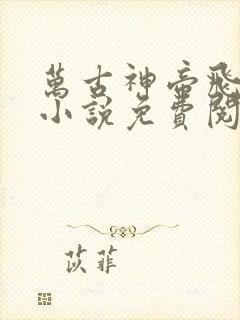 萬古神帝飛
小說免費閱
苡菲